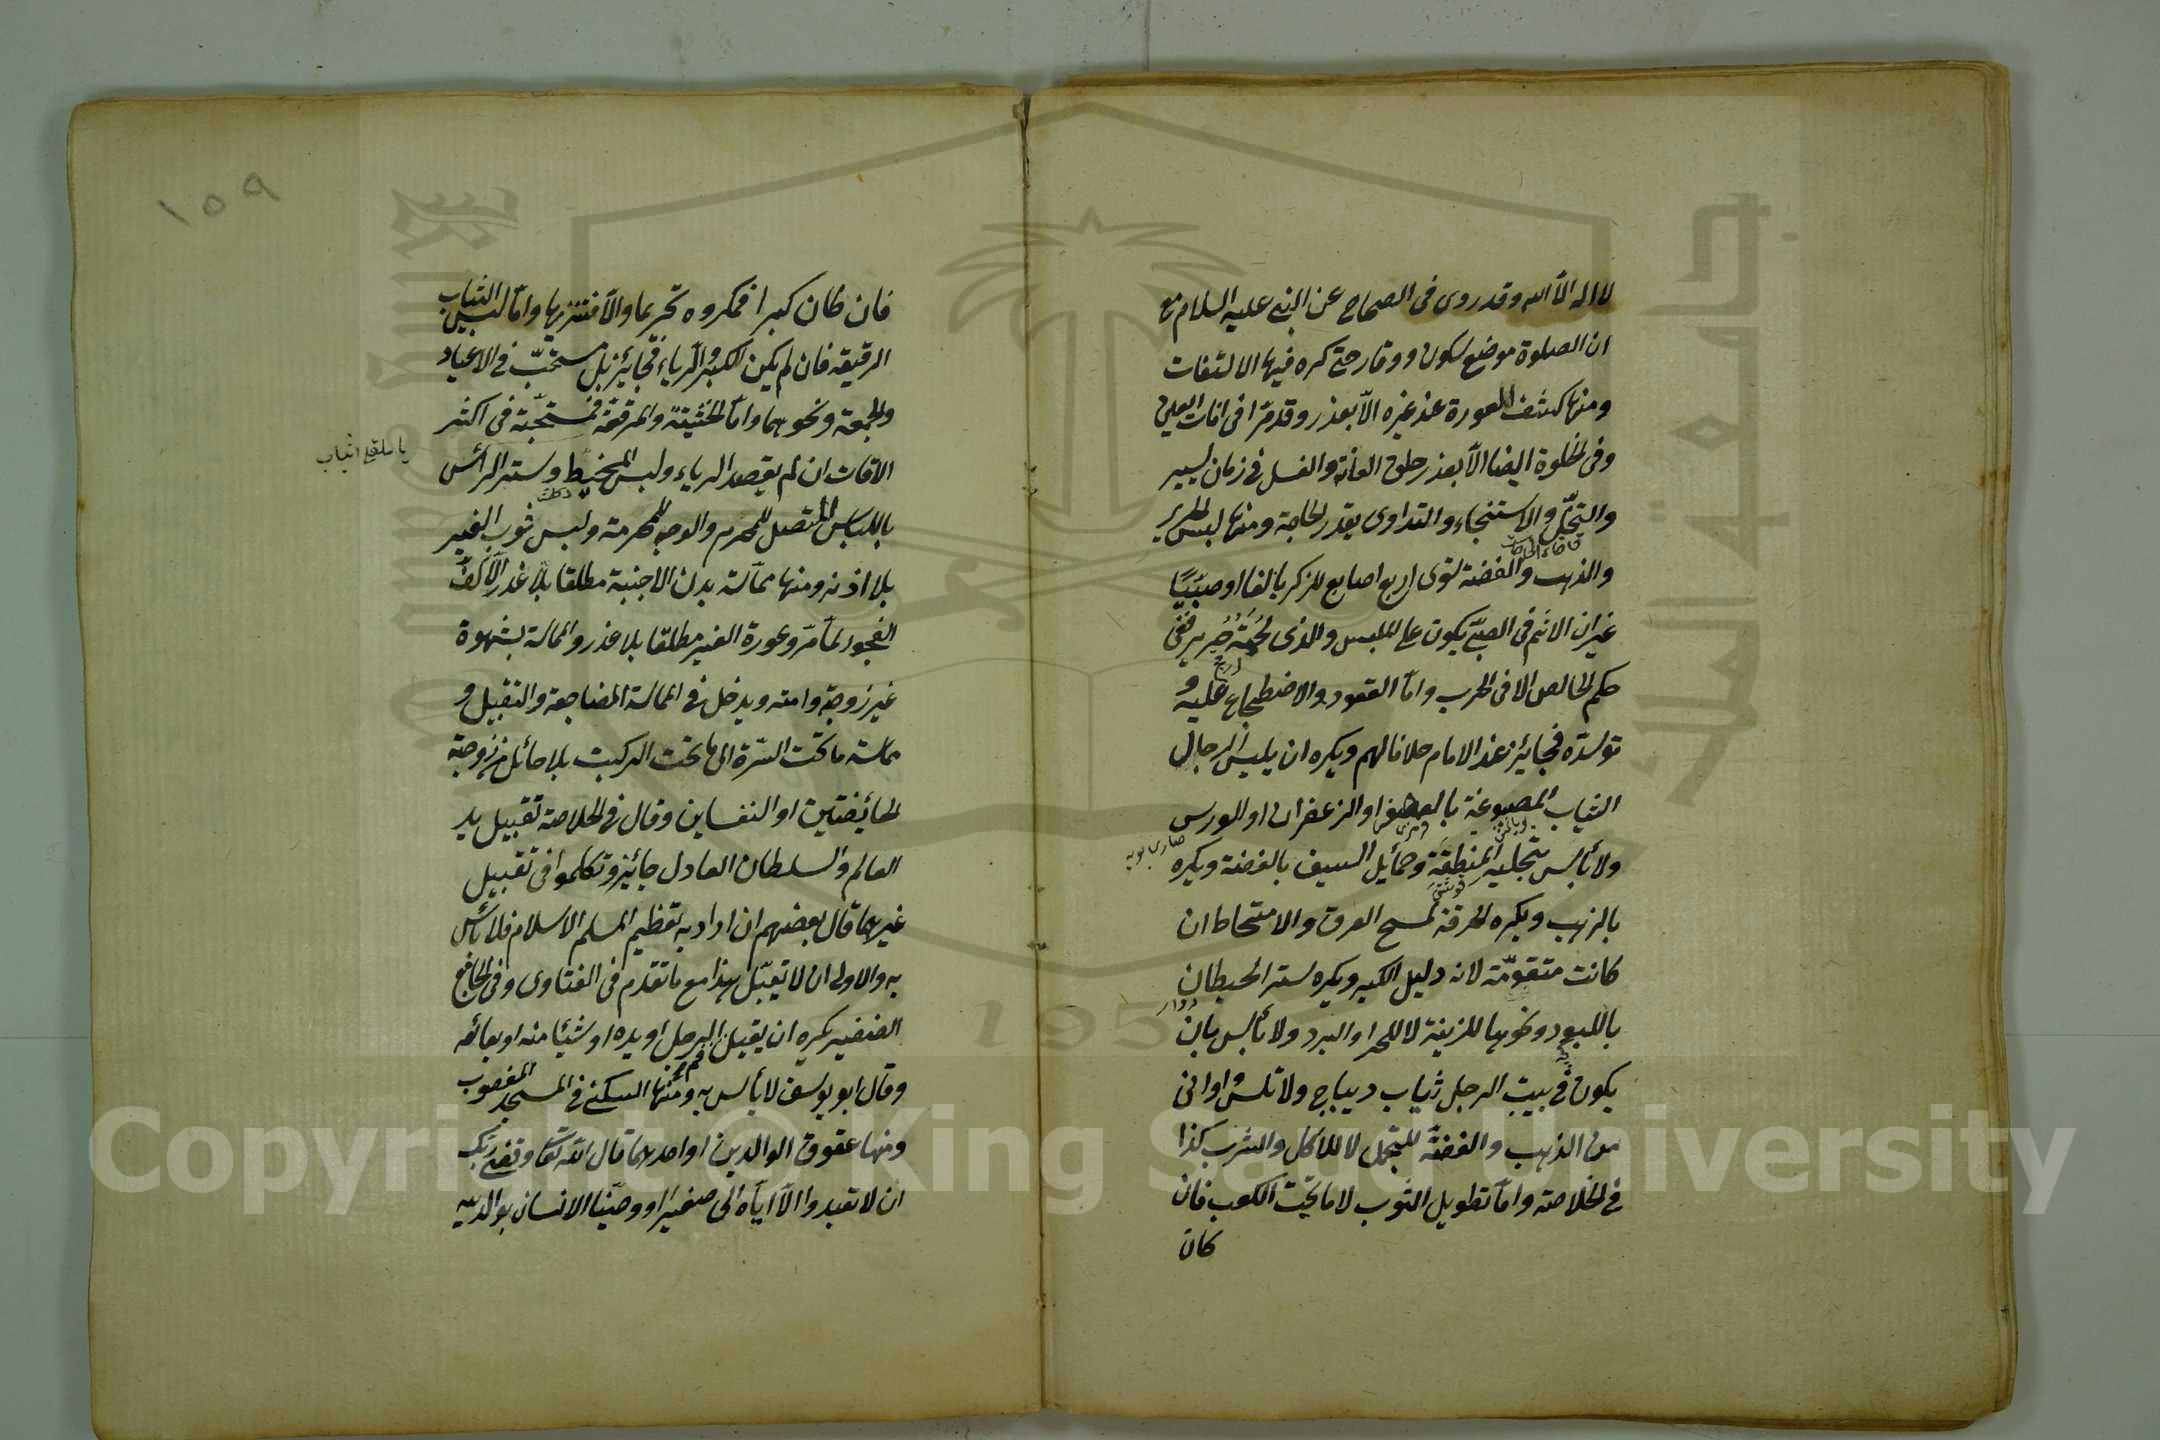 لا اله الا الله وقد روى فى الصحاح عن النبى عليه السلام مع
ان الصلوة موضع سكون ووقار حتى كره فيها الالتفات
ومنها كشف العورة عند غيره الا بعذر وقد مر فى افات العلن
وفى الخلوة ايضا الا بعذر حلق العانة والغسل فى زمان يسير
والتخلى والاستنجاء والتداوى بقدر الحاجة ومنها لبس الحرير
قضاء الحاجات
والذهب والفضة سوى اربع اصابع للذكر بالغا او صبيا
غير ان الاثم فى الصبى يكون على الملبس والذى لحمته حرير ففى
ارج
حكم الخالص الا فى الحرب واما القعود والاضطجاع عليه و
توسده فجائز عند الامام خلافا لهم ويكره ان يلبس الرجال
الثياب المصبوغة بالعصفر او الزعفران او الورس
ولا بأس بتحلية المنطقة وحمائل السيف بالفضة ويكره
بالذهب ويكره الخرقة لمسح العرق والامتخاط ان
كانت متقومة لانه دليل الكبر ويكره ستر الحيطان
باللبود ونحوها للزينة لا للحر او البرد ولا بأس بان
يكون فى بيت الرجل ثياب ديباج ولا تلبس واوانى
من الذهب والفضة للتجمل لا للاكل والشرب كذا
فى الخلاصة واما تطويل الثوب لا ما تحت الكعب فان
كان
١٥٩
فان كان كبرا فمكروه تحريما والا فتنزيها واما لبس الثياب
الرقيقة فان لم يكن للكبر والرياء فجائز بل مستحب فى الاعياد
والجمعة ونحوهما واما الخشنة والمرقعة فمستحبة فى اكثر
الاقات ان لم يقصد الرياء ولبس المخيط وستر الرأس
باللباس المتصل للمحرم والوجه للمحرمة ولبس ثوب الغير
بلا اذنه ومنها مماسة بدن الاجنبية مطلقا بلا عذر الا كف
العجوز لما مر وعورة الغير مطلقا بلا عذر والمماسة بشهوة
غير زوجته وامته ويدخل فى المماسة المضاجعة والتقبيل و
مماسة ما تحت السرة الى ما تحت الركبة بلا حائل من زوجته
الحائضتين او النفساين وقال فى الخلاصة تقبيل يد
العالم والسلطان العادل جائز وتكلموا فى تقبيل
غيرهما قال بعضهم ان اراد به تعظيم المسلم الاسلام فلا بأس
به والاولى ان لا تقبل هذا مع ما تقدم فى الفتاوى وفى الجامع
الصغير يكره ان يقبل الرجل او يده او شيئا منه او يعانقه
فم رجل
وقال ابو يوسف لا بأس به ومنها السكنى فى المسجد المغصوب
ومنها عقوق الوالدين او احدهما قال الله تعالى وقضى ربك
ان لا تعبدوا الا اياه الى صغيرا ووصينا الانسان بوالديه
Copyright © King Saud University
195